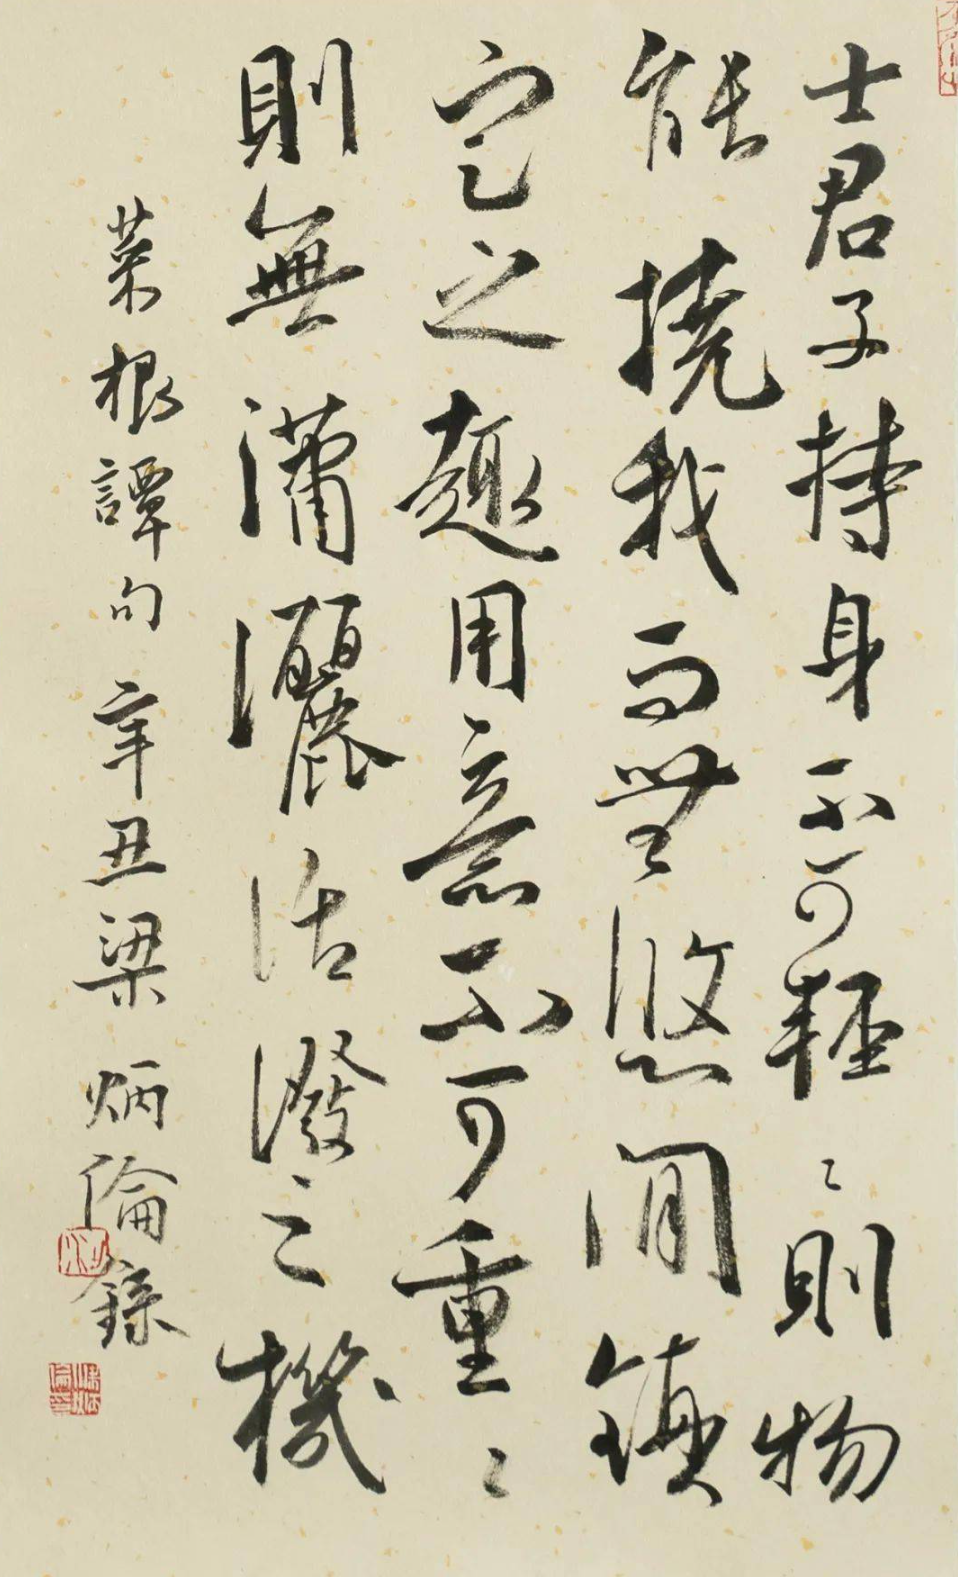 士君子持身不可輕〻則物
能撓我而無悠閒鎮
定之趣用意不可重〻
則無瀟灑活潑之機
菜根譚句辛丑梁炳倫錄